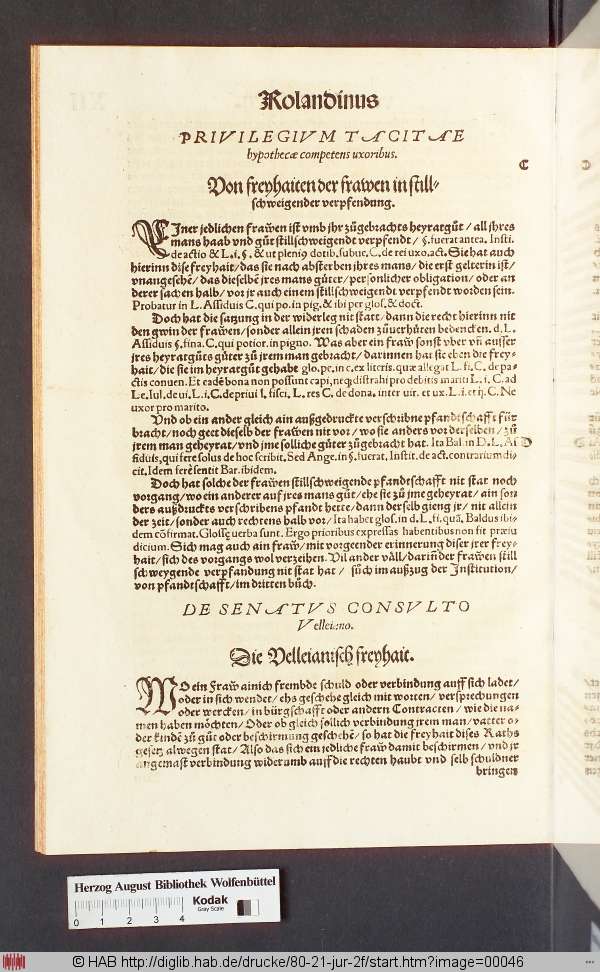 Rolandinus
PRIVILEGIVM TACITAE
hypothecæ competens uxoribus.
Von freyhaiten der frawen in still⸗
schweigender verpfendung.
EIner jedlichen frawen ist vmb jhr zůgebrachts heyratgůt / all jhres
mans haab vnd gůt stillschweigendt verpfendt / §. fuerat antea. Insti.
de actio & L. i. §. & ut pleniꝰ dotib. subue. C. de rei uxo. act. Sie hat auch
hierinn dise freyhait / das sie nach absterben jhres mans / die erst gelterin ist /
vnangesehē / das dieselbē jres mans gůter / persönlicher obligation / oder an
derer sachen halb / vor jr auch einem stillschweigendt verpfendt worden sein.
Probatur in L. Assiduis C. qui po. in pig. & ibi per glos. & doct.
Doch hat die satzung in der widerleg nit statt / dann die recht hierinn nit
den gwin der frawen / sonder allein jren schaden zůuerhüten bedencken. d. L.
Assiduis §. fina. C. qui potior. in pigno. Was aber ein fraw sonst vber vñ ausser
jres heyratgůts gůter zů jrem man gebracht / darinnen hat sie eben die frey⸗
hait / die sie im heyratgůt gehabt glo. pe. in c. ex literis. quæ allegat L. fi. C. de pa⸗
ctis conuen. Et eadē bona non possunt capi, neqꝫ distrahi pro debitis mariti L. i. C. ad
Le. Iul. de ui. L. i. C. de priui l. fisci. L. res C. de dona. inter uir. et ux. L. i. et ij. C. Ne
uxor pro marito.
Vnd ob ein ander gleich ain außgedruckte verschribne pfandtschafft für
bracht / noch geet dieselb der frawen nit vor / wo sie anders vor derselben / zů
jrem man geheyrat / vnd jme solliche gůter zůgebracht hat. Ita Bal. in D. L. As
siduis, qui fere solus de hoc scribit. Sed Ange. in §. fuerat, Instit. de act. contrarium di⸗
cit. Idem ferè sentit Bar. ibidem.
Doch hat solche der frawen stillschweigende pfandtschafft nit stat noch
vorgang / wo ein anderer auf jres mans gůt / ehe sie zů jme geheyrat / ain son
ders außdruckts verschribens pfandt hette / dann der selb gieng jr / nit allein
der zeit / sonder auch rechtens halb vor / Ita habet glos. in d. L. fi. quā. Baldus ibi⸗
dem cōfirmat. Glossę uerba sunt. Ergo prioribus expressas habentibus non fit præiu
dicium. Sich mag auch ain fraw / mit vorgeender erinnerung diser jrer frey⸗
hait / sich des vorgangs wol verzeihen. Vil ander väll / darinn der frawen still
schweygende verpfandung nit stat hat / sůch im außzug der Institution /
von pfandtschafft / im dritten bůch.
DE SENATVS CONSVLTO
Velleiano.
Die Velleianisch freyhait.
WO ein Fraw ainich frembde schuld oder verbindung auff sich ladet /
oder in sich wendet / ehs geschehe gleich mit worten / versprechungen
oder wercken / in bürgschafft oder andern Contracten / wie die na⸗
men haben möchten / Oder ob gleich sollich verbindung jrem man / vatter o⸗
der kindē zů gůt oder beschirmung geschehē / so hat die freyhait dises Raths
gesetz alwegen stat / Also das sich ein jedliche fraw damit beschirmen / vnd jr
angemast verbindung widerumb auff die rechten haubt vnd selb schuldner
bringen
Herzog August Bibliothek Wolfenbüttel
Kodak
Gray Scale
0 1 2 3 4
© HAB http://diglib.hab.de/drucke/80-21-jur-2f/start.htm?image=00046